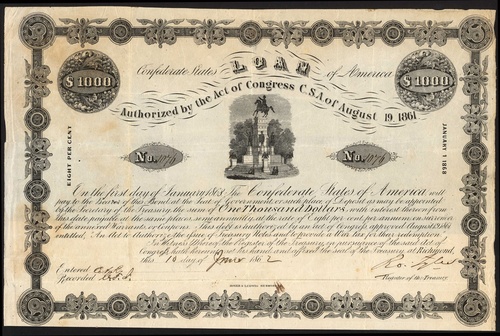 $1000
Confederate States LOAN of America
$1000
Authorized by the Act of Congress C.S.A. of August 19, 1861
EIGHT PER CENT
JANUARY 1 1868
No.
No.
On the first day of January 1868 The Confederate States of America will
pay to the Bearer of this Bond, at the seat of Government, or such place of Deposit as may be appointed
by the Secretary of the Treasury, the sum of One Thousand Dollars, with interest thereon from
this date payable at the same place semi-annually, at the rate of Eight per cent per annum on surrender
of the annexed Warrants or Coupons. This debt is authorized by an act of Congress approved August 19, 1861
entitled, An Act to Authorize the issue of Treasury Notes and to provide a War Tax for their redemption.
In Witness Whereof the Register of the Treasury in pursuance of the said Act of
Congress hath hereunto set his hand and affixed the seal of the Treasury at Richmond,
this 10 day of June 1862
Entered
Recorded
Register of the Treasury